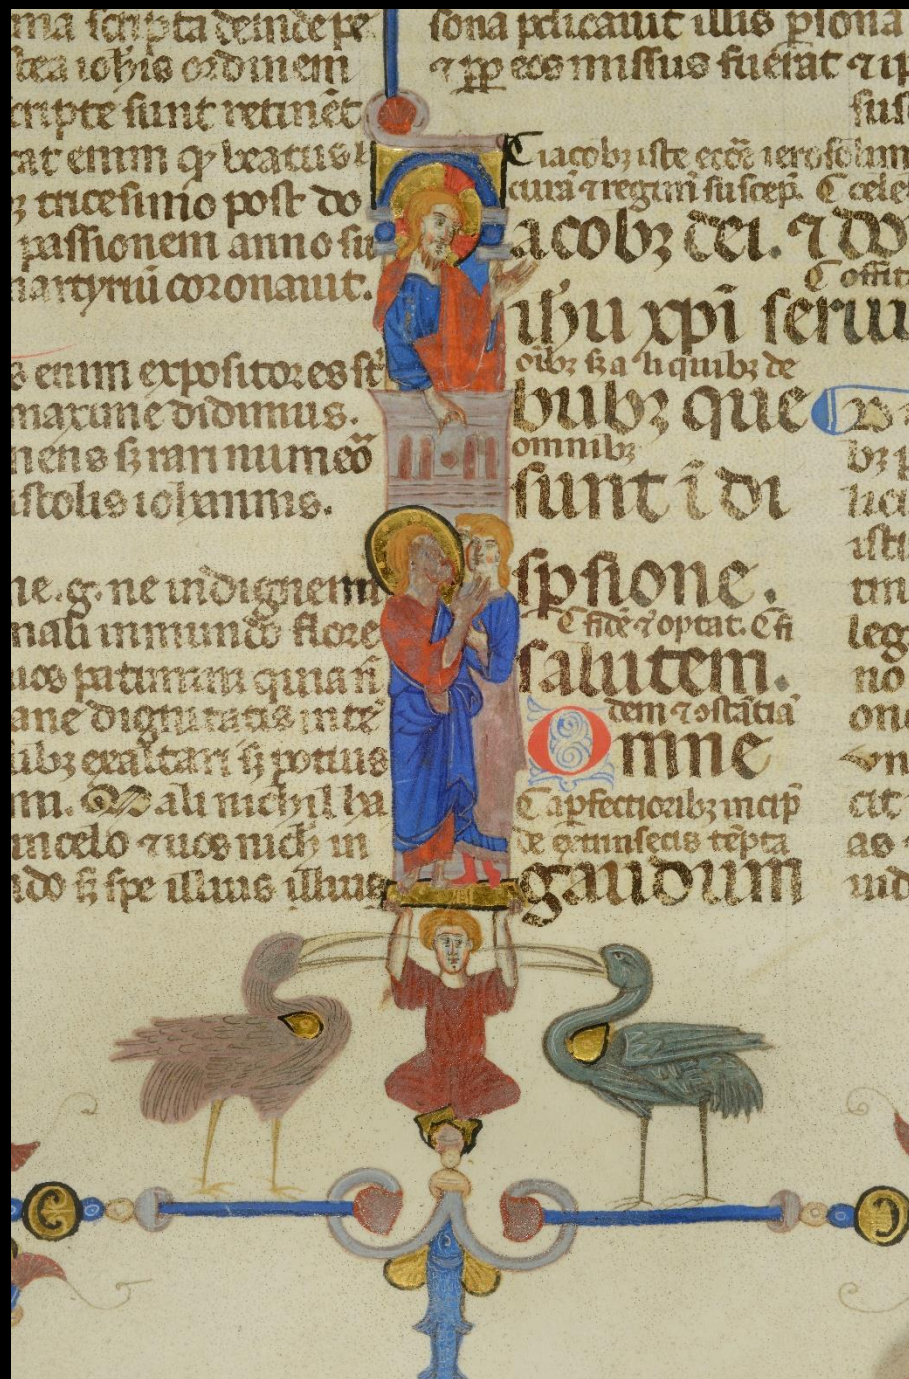 ma scripta deinde pe
bea ioh̄is ordinem
cripte sunt retinēt
tat enim qꝫ beatus
ꝫ tricesimo post do
passionem anno su
martyriū coronauit.
s enim expositores st̄
maxime didimus.
nens sꝫ rari numeō
istolis iohannis.
ne .g. ne indignem
nasi inmundo flore
uos patimini quia n̄
ane dignitatis inte
ibꝫ exaltari sꝫ potius
m. Mali nichil ha
in celo ⁊ uos nich in
do sꝫ spe illius illius
sona pdicauit illis psona
⁊ ꝓꝑ eos missus fuerat ⁊ ip
sus
iacobꝫ iste eccē ierosolim
curā ⁊ regim̄ suscep̄. cele
acobꝫ dei. ⁊ do
ih̄u xp̄i seruu
oībꝫ sꝫ aliquibꝫ de
bubꝫ que
omnibꝫ
sunt ī di
spsione.
fidē ⁊ optat.
salutem.
dem ⁊ ostātia
Omne
a pfectioribꝫ incip
de extrinsecis tēpta
gaudium
bꝫ
leg
no
as